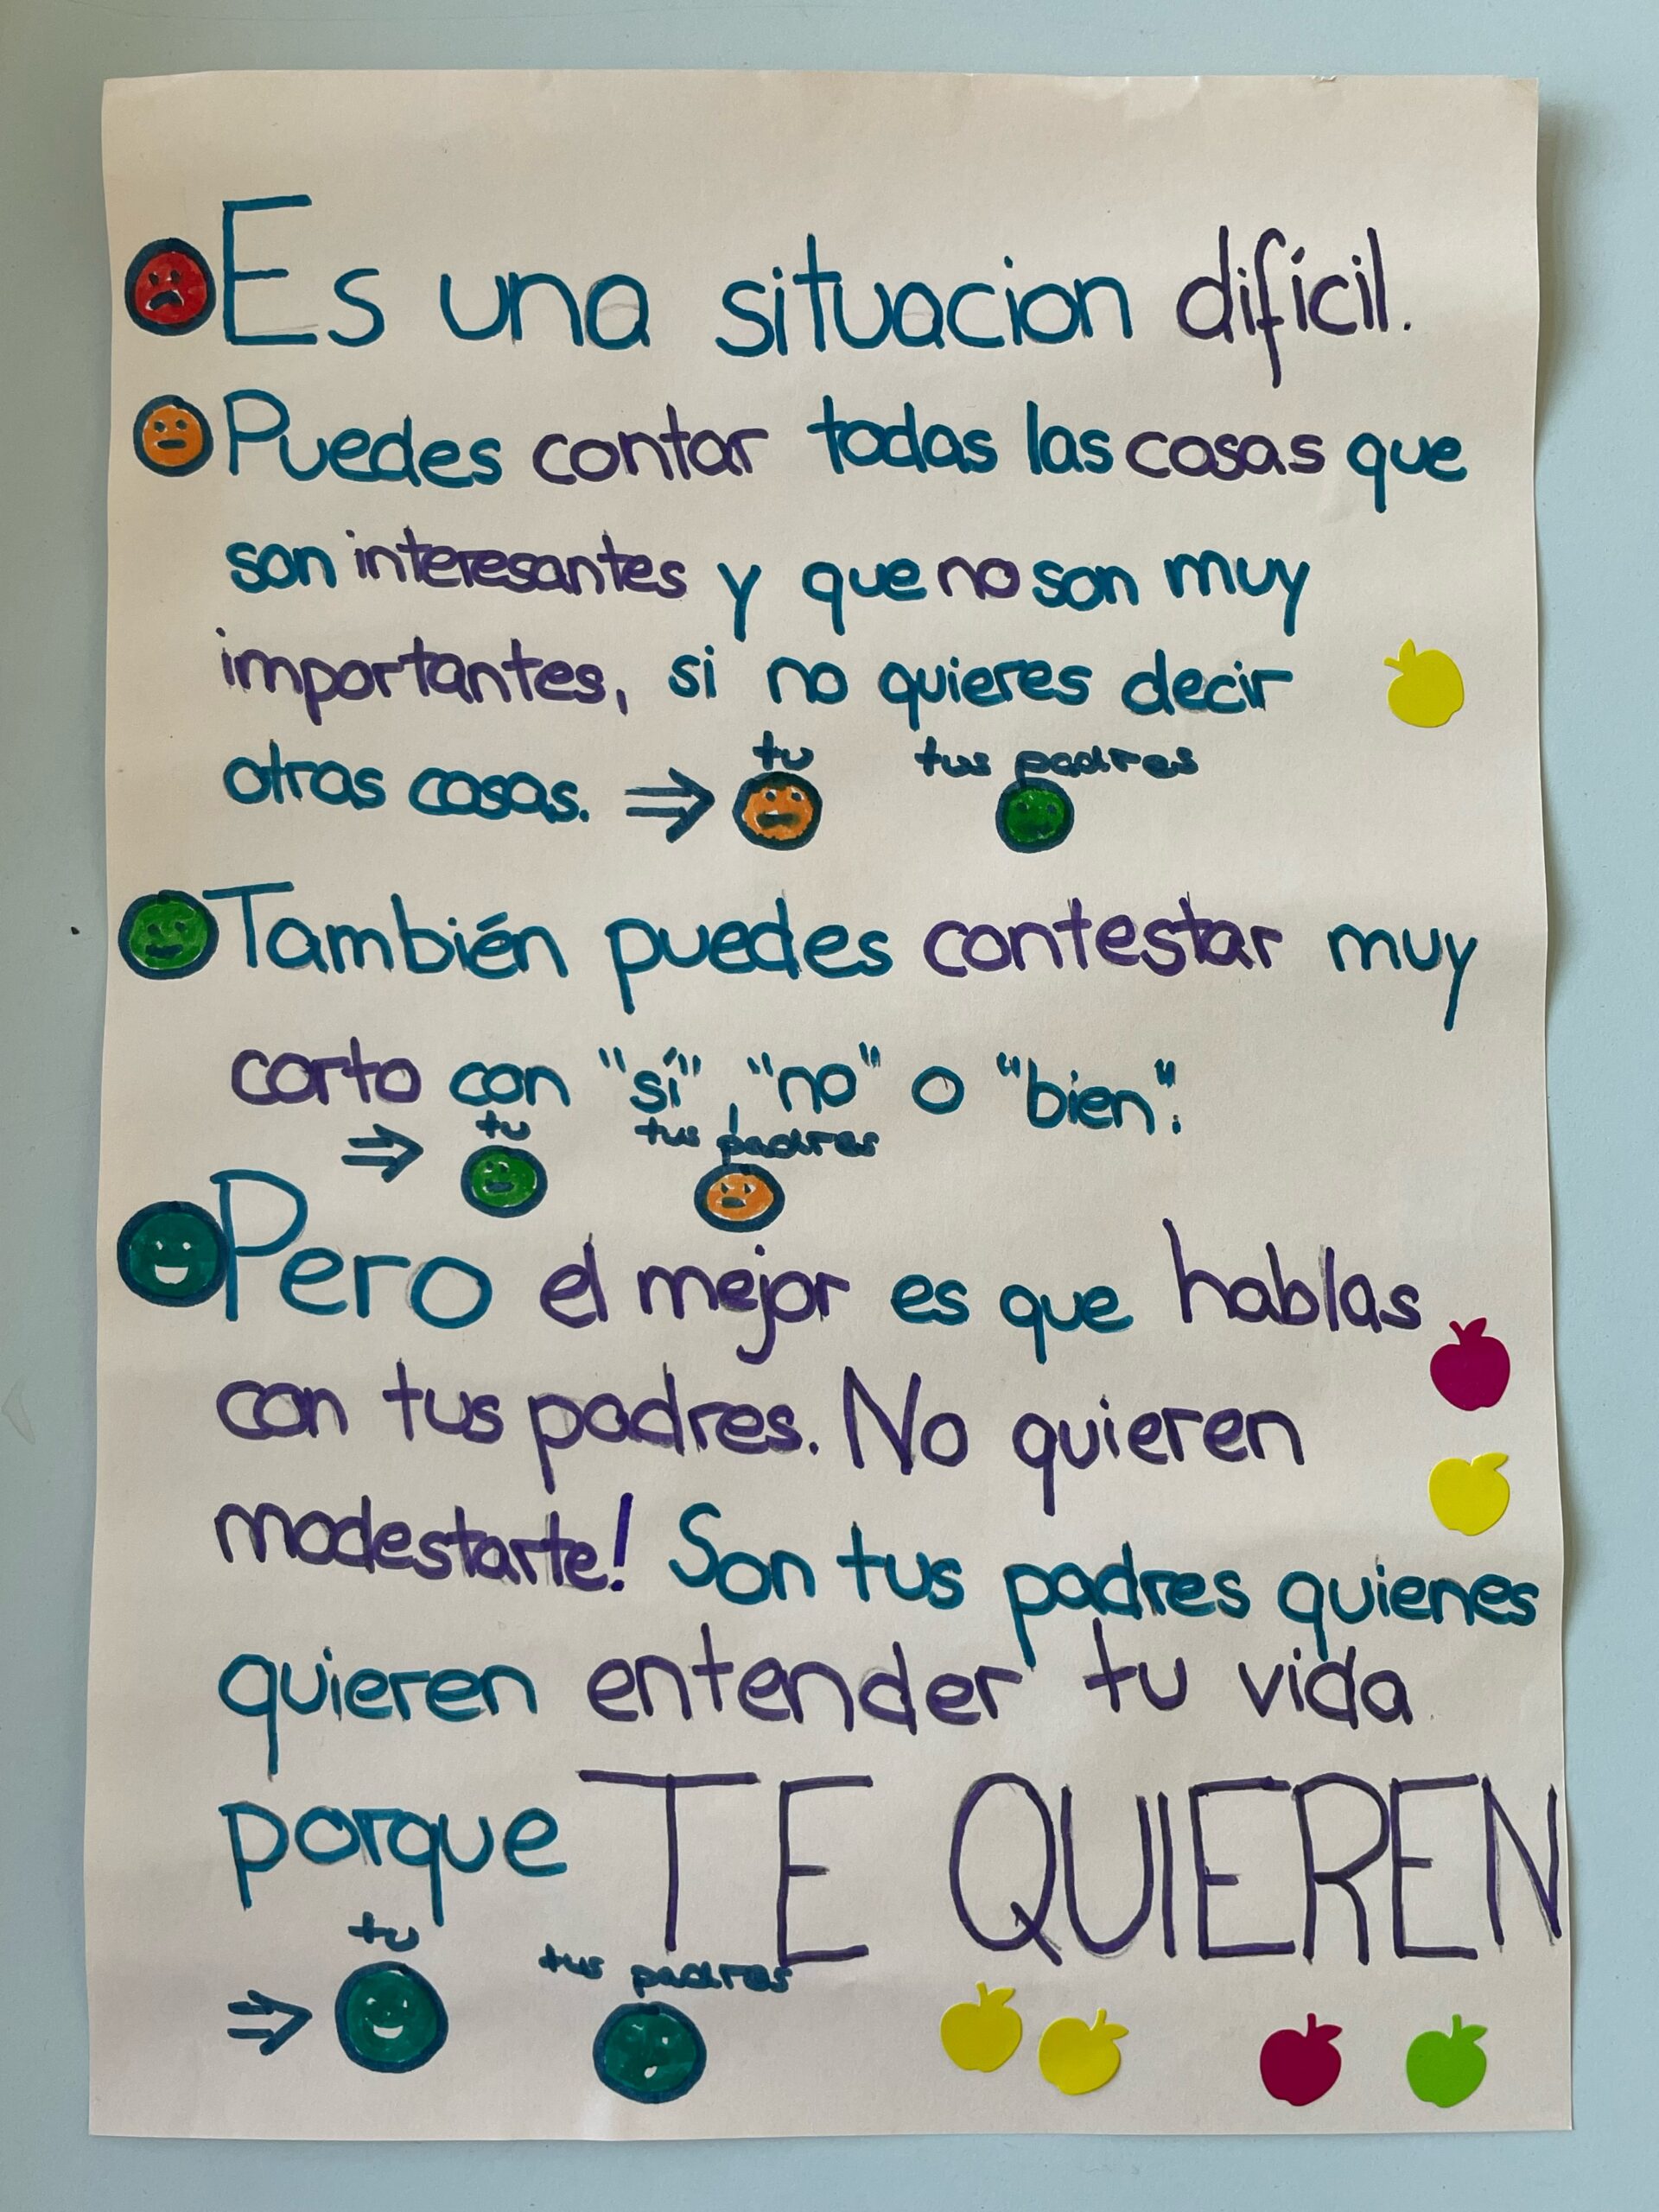 Es una situacion difícil.
Puedes contar todas las cosas que
son interesantes y que no son muy
importantes, si no quieres decir
tu tus padres
otras casas. ⇒
También puedes contestar muy
corto con "sí", "no" o "bien".
⇒ tu tus padres
Pero el mejor es que hablas
con tus padres. No quieren
modestarte! Son tus padres quienes
quieren entender tu vida
porque TE QUIEREN
tu tus padres
⇒